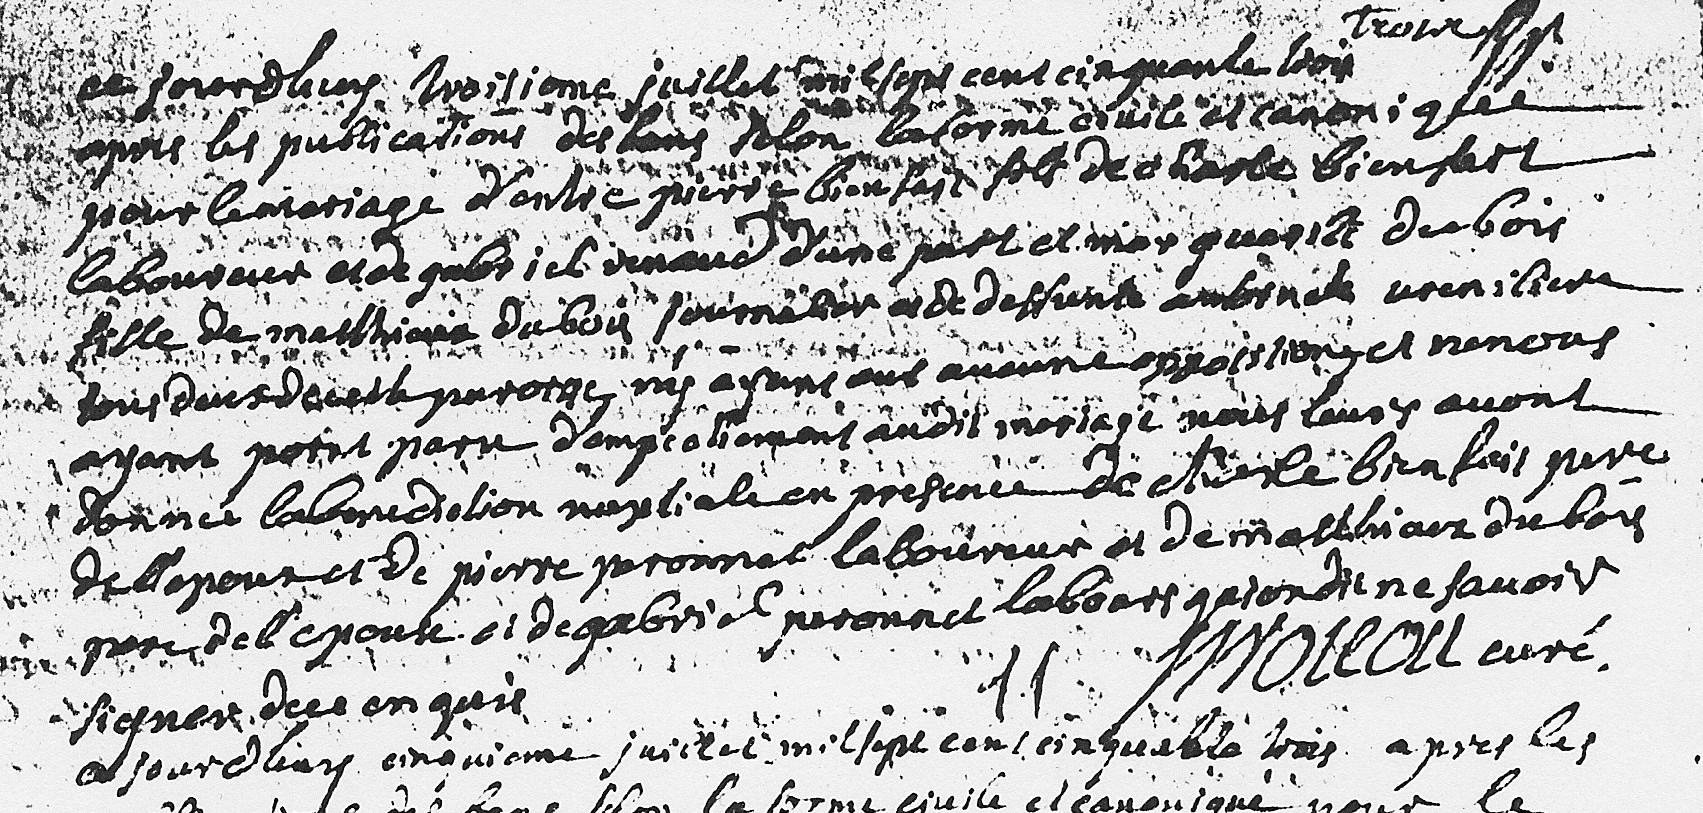 trois
ce jourdhuy troisieme juillet mil sept cent cinquante trois
apres les publications des bans selon la forme civile et canonique
pour le mariage d'entre pierre bienfait fils de charle bienfait
laboureur et de gabriel renaud d'une part et marguerite dubois
fille de matthieu dubois journalier et de deffunte
tous deux de cette paroisse, n'y ayant eut aucune oppositions et ne nous
ayant point paru d'empechemens audit mariage nous leurs avont
donnee la benediction nuptiale en presence de charle bienfait pere
de l'epoux et de pierre peronnet laboureur et de matthieux dubois
pere de l'epouse et de gabriel peronnet labours qui ont dit ne savoir
signer de ce enquis curé.
ce jourdhuy cinquieme juillet mil sept cent cinquante trois apres les
des bans selon la forme civile et canonique pour le